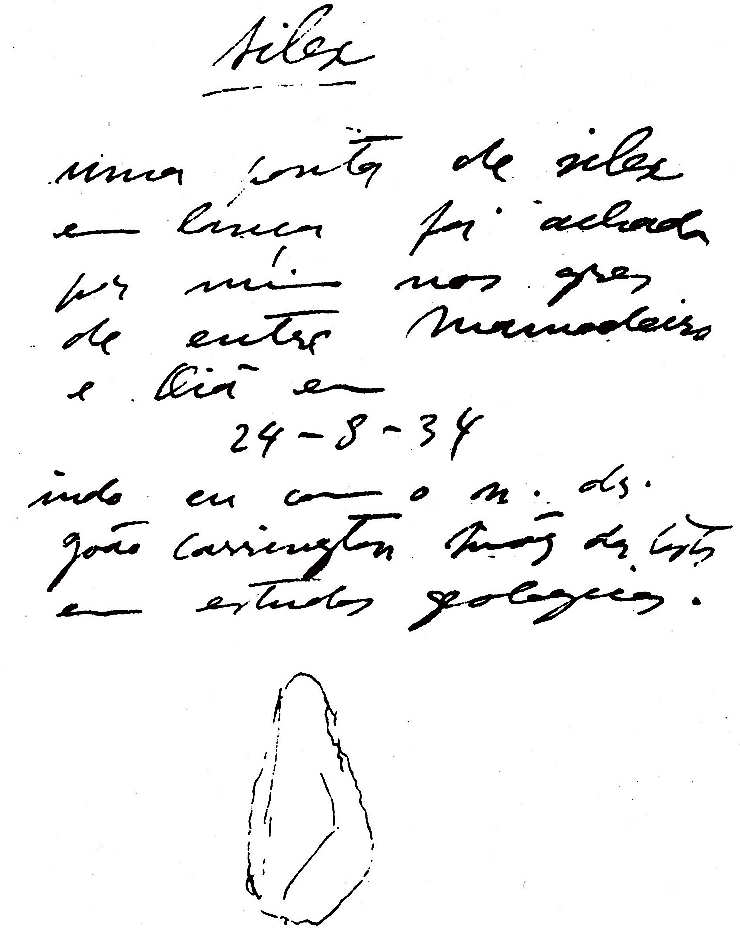 silex
uma ponta de silex
em lança foi achada
por mim nos gres
de entre Mamodeiro
e Oiã em
24-8-34
indo eu com o n. dr.
João Carrington Simões da Costa
em estudos geologicos.